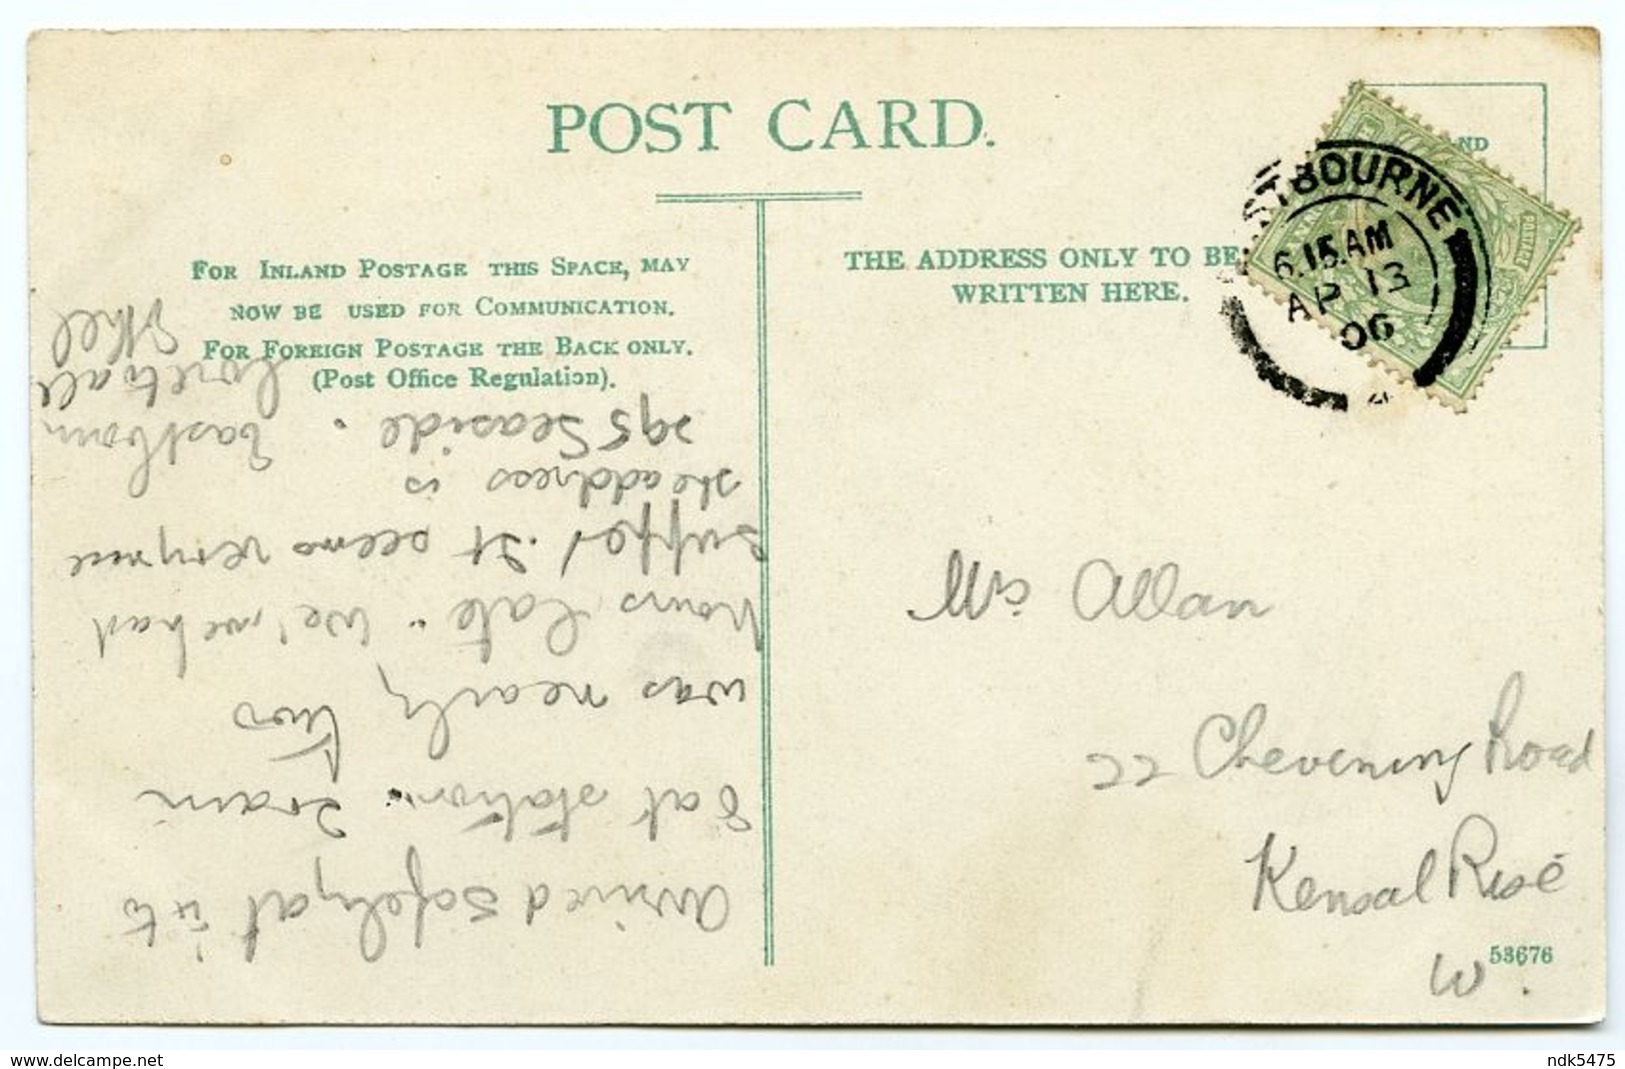 POST CARD.
FOR INLAND POSTAGE THIS SPACE, MAY
NOW BE USED FOR COMMUNICATION.
FOR FOREIGN POSTAGE THE BACK ONLY.
(Post Office Regulation).
THE ADDRESS ONLY TO BE
WRITTEN HERE.
ND
STBOURNE
6.15.AM
AP 13
06
Arrived safely at
8 at station. Train
was nearly two
hours late. We've had
supper. It seems very nice
The address is
295 Seaside. Eastbourn
Love to all
Ethel
Mrs Allan
22 Chevening Road
Kensal Rise
W.
53676
delcampe.net
ndk5475